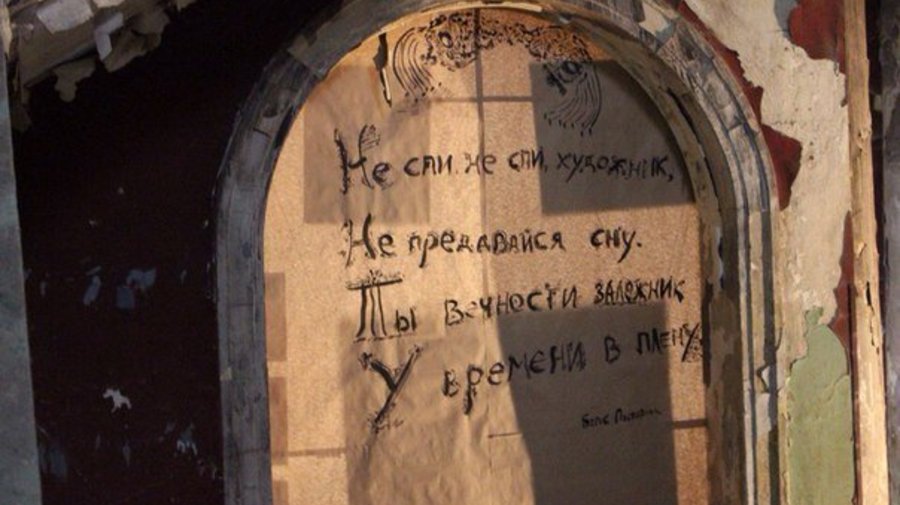 Не спи, не спи, художник,
Не предавайся сну.
Ты вечности заложник
У времени в плену.
Борис Пастернак